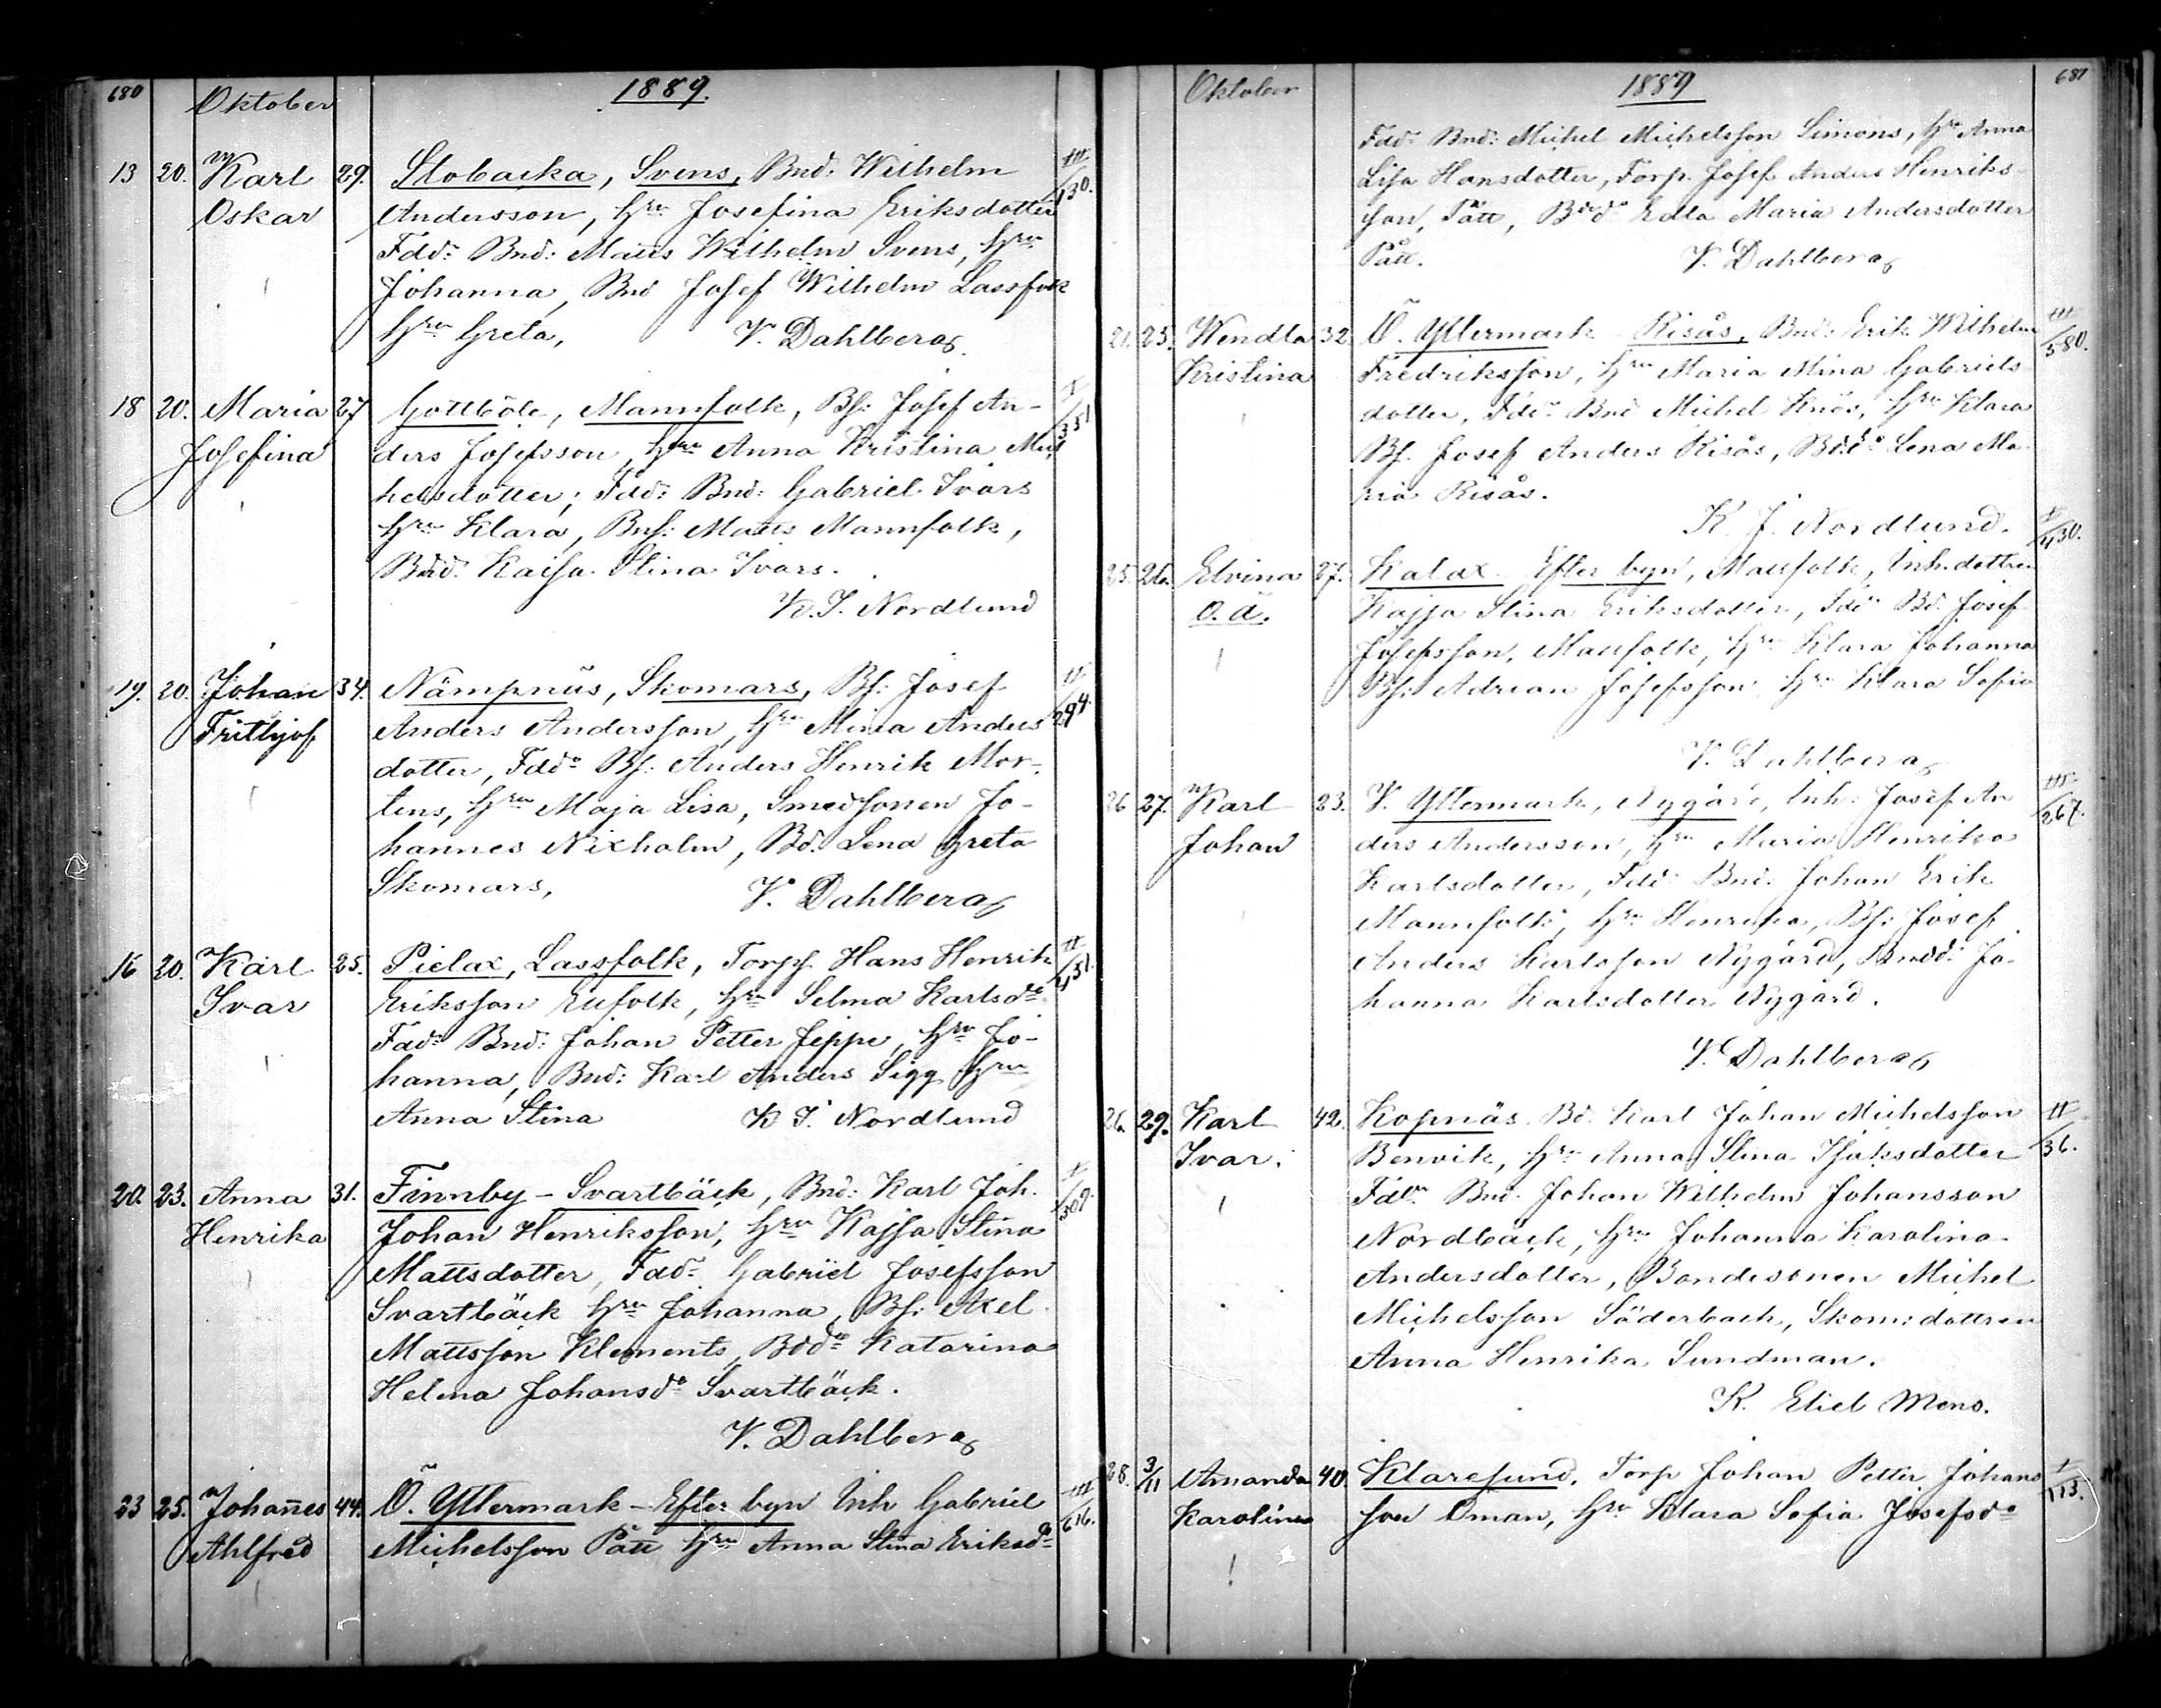 680 Oktober 1889.
13 20. Karl 29. Slobacka, Svens, Bnd: Wilhelm III
Oskar Andersson, hru Josefina Eriksdotter 130.
Fddr Bnd: Matts Wilhelm Svens, hru
Johanna, Bnd Josef Wilhelm Lassfolk
hru Greta, V. Dahlberg
18 20. Maria 27 Gottböle, Mannfolk, Bs: Josef An- I
Josefina ders Josefsson, hru Anna Kristina Mic 351
helsdotter; Fddr Bnd: Gabriel Ivars
hru Klara, Bns: Matts Mannfolk,
Bdd. Kaisa Stina Ivars.
K. J. Nordlund
19. 20. Johan 34. Nämpnäs, Skomars, Bs: Josef II
Frithjof Anders Andersson, hru Mina Anders 294.
dotter, Fddr Bs: Anders Henrik Mor-
tens, hru Maja Lisa, Smedsonen Jo-
hannes Nixholm, Bd. Lena Greta
Skomars, V. Dahlberg
16 20. Karl 25. Pielax, Lassfolk, Torp Hans Henrik II
Ivar Eriksson Eufolk, hru Selma Karlsdr 151.
Faddr Bnd: Johan Petter Jeppe, hru Jo-
hanna, Bnd: Karl Anders Sigg hru
Anna Stina K J. Nordlund
20. 23. Anna 31. Finnby - Svartbäck, Bnd: Karl Joh. I
Henrika Johan Henriksson, hru Kajsa Stina 309.
Mattsdotter, Faddr Gabriel Josefsson
Svartbäck hru Johanna, Bs: Axel
Mattsson Klements, Bddr Katarina
Helena Johansdr Svartbäck.
V. Dahlberg
23 25. Johannes 44. Ö. Yttermark - Efter byn Inh Gabriel III
Ahlfred Michelsson Pått hru Anna Stina Eriksdr 616.
Oktober 1889 681
Fddr Bnd: Michel Michelsson Simons, hru Anna
Lisa Hansdotter, Torp. Josef Anders Henriks-
son, Pått, Bddr Edla Maria Andersdotter
Pått. V. Dahlberg
21. 25. Wendla 32. Ö. Yttermark - Risås, Bnd: Erik Wilhelm III
Kristina Fredriksson, hru Maria Mina Gabriels 380.
dotter, Fddr Bnd Michel Knös, hru Klara
Bs. Josef Anders Risås, Bddr Lena Ma
ria Risås.
K. J. Nordlund.
25. 26. Elvina 27. Kalax Efter byn, Mattfolk, Inh.dottren I
o.ä. Kajsa Stina Eriksdotter, Fddr Bd. Josef 430.
Josefsson, Mattfolk, hru Klara Johanna
Bs: Adrian Josefsson hru Klara Sofia
V. Dahlberg
26 27. Karl 23. V. Yttermark, Nygård, Inh: Josef An III
Johan ders Andersson, hru Maria Henrika 267.
Karlsdotter, Fddr Bnd. Johan Erik
Mannfolk, hru Henrika, Bs: Josef
Anders Karlsson Nygård, Bnddr Jo-
hanna Karlsdotter Nygård.
V. Dahlberg
26. 29. Karl 42. Kopnäs. Bd. Karl Johan Michelsson II
Ivar. Benvik, hru Anna Stina Isaksdotter 36.
Fddr Bnd. Johan Wilhelm Johansson
Nordbäck, hru Johanna Karolina
Andersdotter, Bondesonen Michel
Michelsson Söderback, Skom: dottren
Anna Henrika Sundman.
K. Eliel Mens.
28. 3/11 Amanda 40. Klaresund. Torp Johan Petter Johans I
Karolina son Öman, hru Klara Sofia Josefsdr 113.